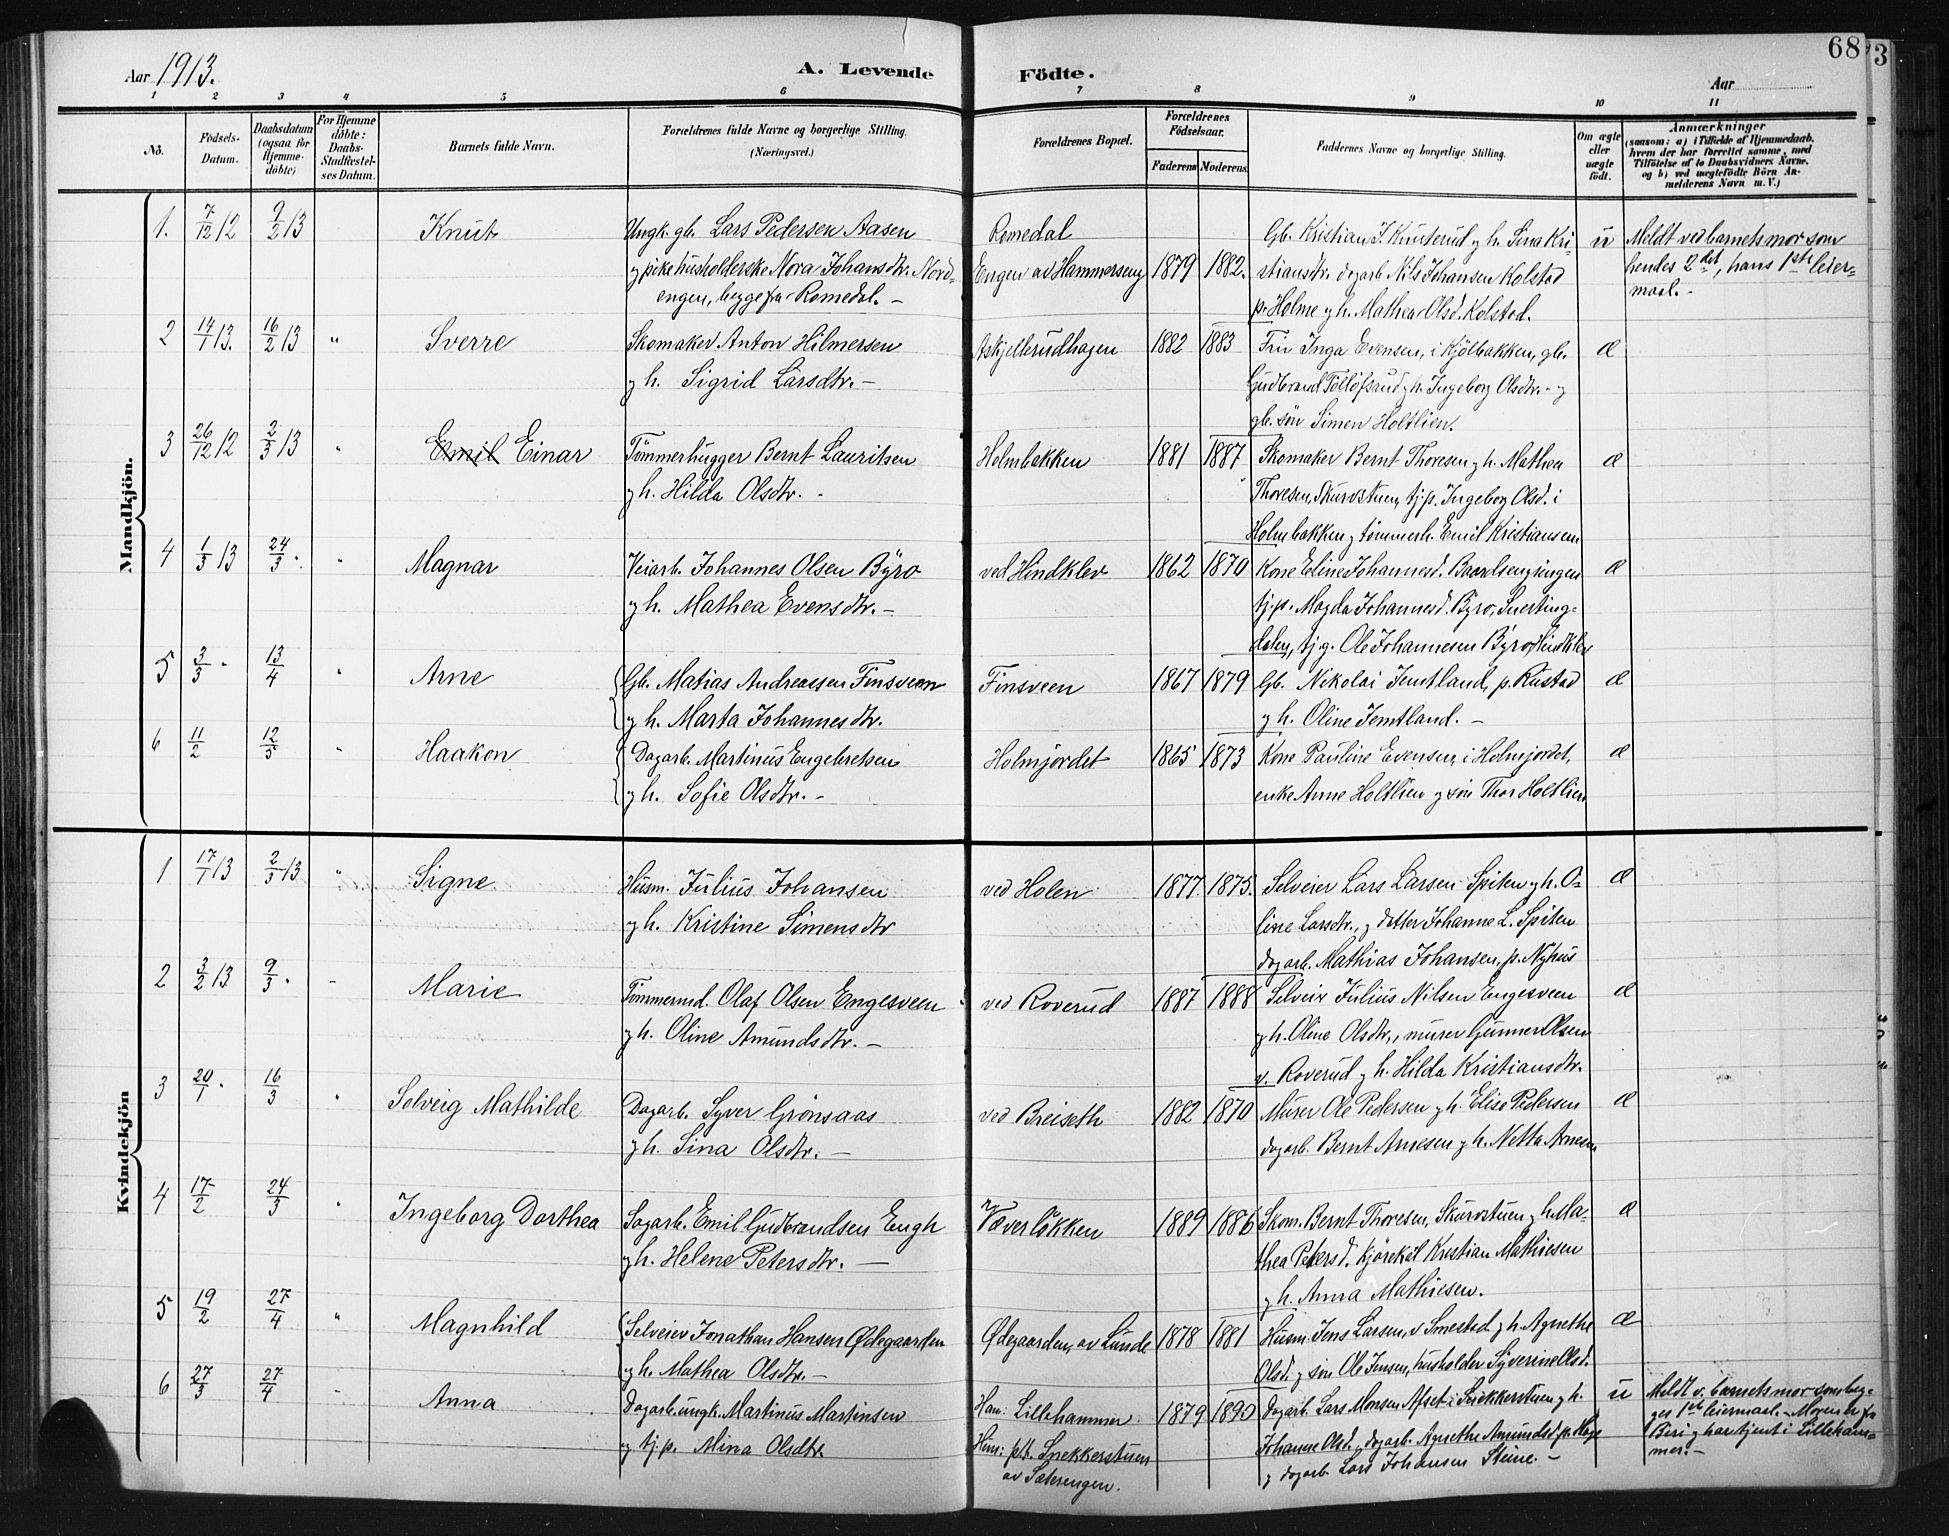 Aar 1913.
A. Levende Födte.
Aar
68
3
1 2 3 4 5 6 7 8 9 10 11
No.
Födsels-Datum.
Daabsdatum (ogsaa for Hjemme-döbte)
For Hjemme döbte: Daabs-Stadfæstelses Datum.
Barnets fulde Navn.
Forældrenes fulde Navne og borgerlige Stilling. (Næringsvei.)
Forældrenes Bopæl.
Forældrenes Födselsaar.
Faderens Moderens
Faddernes Navne og borgerlige Stilling.
Om ægte eller uægte födt.
Anmærkninger
(saasom: a) i Tilfælde af Hjemmedaab, hvem der har forrettet samme, med Tilföielse af to Daabsvidners Navne, og b) ved uægtefödte Börn Anmelderens Navn m. V.)
Mandkjön.
1. 7/12 12 9/2 13 Knut Ungk. gb. Lars Pedersen Aasen Romedal Gb. Kristian J. Knuterud og h. Sina Kri- u Meldt ved barnets mor som
og pike husholderske Nora Johansdtr. Nord- Engen av Hammerseng 1879 1882. stiansdtr. dagarb. Nils Johansen Kolstad hendes 2det, hans 1ste leier-
engen, begge fra Romedal. – p. Holme og h. Mathea Olsd. Kolstad. maal. –
2 14/1 13. 16/2 13 " Sverre Skomaker Anton Hilmersen Askjellerudhagen 1882 1883 Fru Inga Evensen, i Kjölbakken, gb. æ
og h. Sigrid Larsdtr. – Gudbrand Tollöfsrud og h. Ingeborg Olsdtr. – og
gb. sön Simen Holtlien.
3 26/12 12 2/3 13 " Emil Einar Tömmerhugger Bernt Lauritsen Holmbakken 1881 1887 Skomaker Bernt Thoresen og h. Mathea æ
og h. Hilda Olsdtr. – Thoresen, Skurvstuen, tj.p. Ingeborg Olsd. i
Holmbakken og tømmerh. Emil Kristiansen
4 1/3 13 24/3 " " Magnar Veiarb. Johannes Olsen Byro ved Hindklev 1862 1870 Kone Eline Johannesd. Baardsengingen æ
og h. Mathea Evensdtr. – tj.p. Magda Johannesd. Byro, Snerting-
dalen, tj.g. Ole Johannesen Byro, Hindklev
5 3/3 " 13/4 " Arne Gb. Matias Andreassen Finsveen Finsveen 1867 1879 Gb. Nikolai Jemtland, p. Rustad æ
og h. Marta Johannesdtr. og h. Oline Jemtland. –
6 11/2 12/5 " Haakon Dagarb. Martinus Engebretsen Holmjordet 1865 1873 Kone Pauline Evensen, i Holmjordet, æ
og h. Sofie Olsdtr. – enke Anne Holtlien og sön Thor Holtlien
Kvindekjön
1 17/1 13 2/3 13 " Signe Husm. Julius Johansen ved Holen 1877. 1875. Selveier Lars Larsen Spiten og h. O- æ
og h. Kristine Simensdtr line Larsdtr., og datter Johanne L. Spiten
dagarb. Mathias Johansen, p. Nyhus
2 3/2 13 9/3 " – Marie Tömmermd. Olaf Olsen Engesveen ved Roverud 1887 1888 Selveier Julius Nilsen Engesveen æ
og h. Oline Amundsdtr. – og h. Oline Olsdtr., murer Gunner Olsen
v. Roverud og h. Hilda Kristiansdtr.
3 20/1 " 16/3 " Solveig Mathilde Dagarb. Syver Grönsaas ved Breiseth 1882 1870 Murer Ole Pedersen og h. Elise Pedersen æ
og h. Sina Olsdtr. – dagarb. Bernt Arnesen og h. Netta Arnesen
4 17/2 24/3 " Ingeborg Dorthea Sagarb. Emil Gudbrandsen Engh Væverlökken 1889 1886 Skom. Bernt Thoresen, Skurvstuen og h. Ma- æ
og h. Helene Petersdtr. – thea Petersd. kjörekál Kristian Mathiesen
og h. Anna Mathiesen.
5 19/2 27/4 " Magnhild Selveier Jonathan Hansen Ødegaarden Ødegaarden, av Lunde 1878 1881 Husm. Jens Larsen, v Smestad og h. Agnethe æ
og h. Mathea Olsdtr. – Olsd. og sön Ole Jensen, husholder Syverine Olsd.
6 27/3 27/4 – Anna Dagarb. ungk. Martinus Martinsen Han: Lillehammer 1879 1890 dagarb. Lars Monsen Afset i Snekkerstuen og h. u Meldt v. barnets mor som beg-
og tj.p. Mina Olsdtr. Hun: p.t. Snekkerstuen Johanne Olsd. dagarb. Agnethe Amundsd. p. Hage ges 1ste leiermaal. – Moren er fra
av Sæterengen. og dagarb. Lars Johansen Steine. – Biri og har tjent i Lilleham-
mer. –